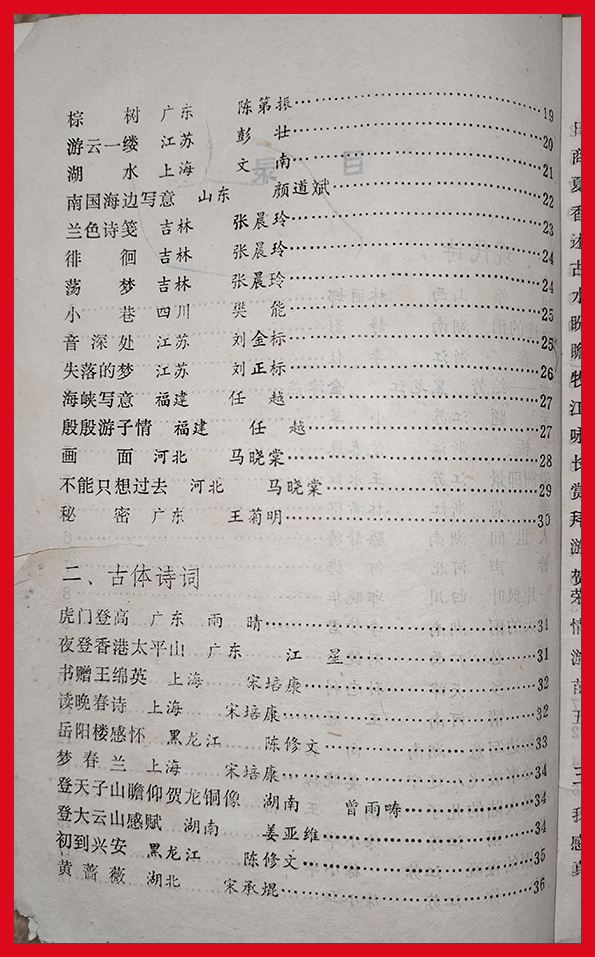 棕 树 广东 陈第振……19
游云一缕 江苏 彭 壮……20
湖 水 上海 文 南……21
南国海边写意 山东 颜道斌……22
兰色诗笺 吉林 张晨玲……23
徘 徊 吉林 张晨玲……24
荡 梦 吉林 张晨玲……24
小 巷 四川 樊 能……25
音 深 处 江苏 刘金标……25
失落的梦 江苏 刘正标……26
海峡写意 福建 任 越……27
殷殷游子情 福建 任 越……27
画 面 河北 马晓棠……28
不能只想过去 河北 马晓棠……29
秘 密 广东 王菊明……30
二、古体诗词
虎门登高 广东 雨 晴……31
夜登香港太平山 广东 江 星……31
书赠王绵英 上海 宋培康……32
读晚春诗 上海 宋培康……32
岳阳楼感怀 黑龙江 陈修文……33
梦 春 兰 上海 宋培康……34
登天子山瞻仰贺龙铜像 湖南 曾雨畴……34
登大云山感赋 湖南 姜亚维……34
初到兴安 黑龙江 陈修文……35
黄 蔷 薇 湖北 宋承焜……36